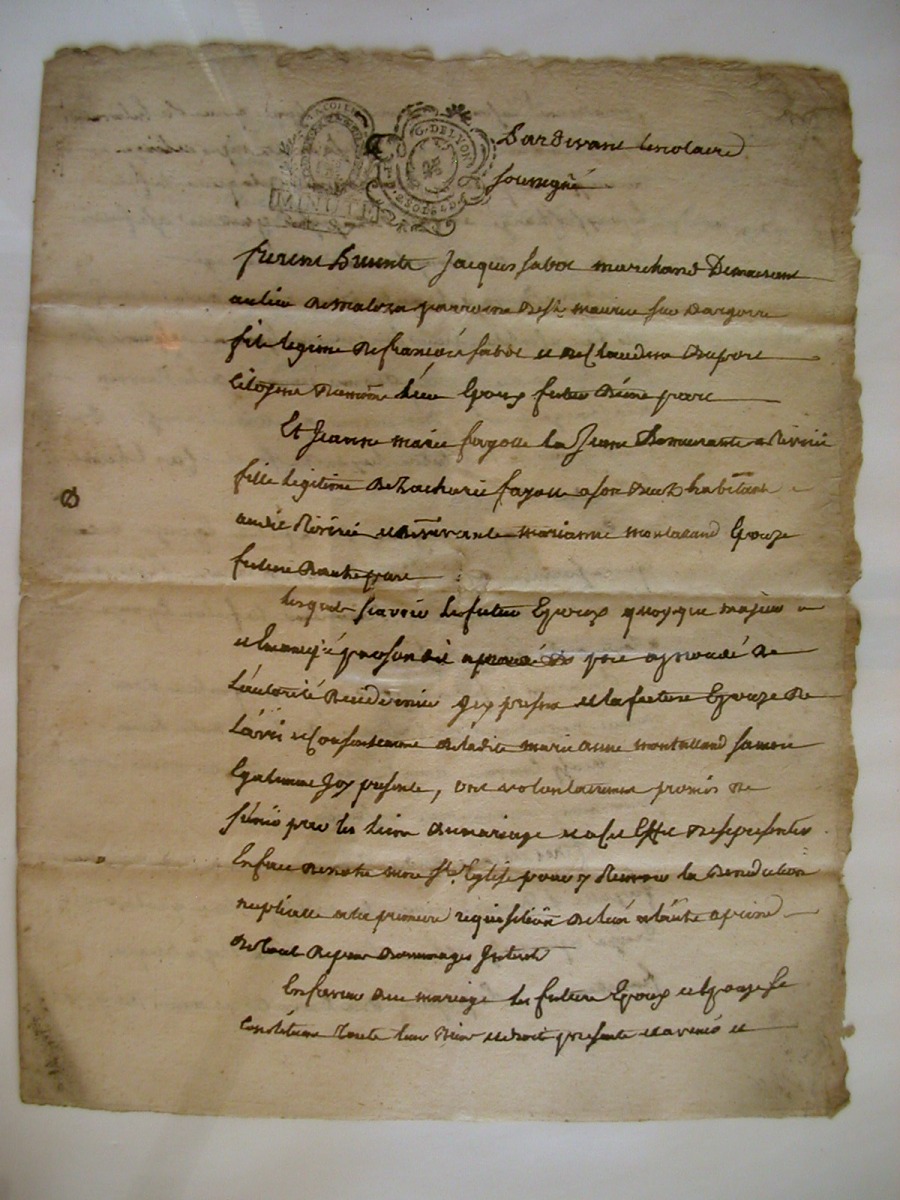 G. DE LYON
MINUTTE
Pardevant le notaire
soussigné
furent présents Jacques fabot marchand Demeurant
au lieu de parroisse de St. maurice sur Dargoire
fils legitime de françois fabot et de Claudine Dupont
dudit lieu Epoux futur d'une part
Et Jeanne marie fayolle la Jeune Demeurante a Riverie
fille legitime de Zacharie fayolle a son deces habitant
audit Riverie et de vivante marianne montaland Epouze
future d'autre part
lesquels sçavoir le futur Epoux quoyque majeur
et emancipé par son dit pere de
l'autorité de ce dernier Icy present et la future Epouze de
l'avis et Consentement de ladite marie anne montalland sa mere
Egalement Icy presente, ont volontairement promis de
s'unir par les liens du mariage et a cet Effet de se presenter
En face de notre mere Ste. Eglise pour y Recevoir la Benediction
nuptialle a la premiere requisition de l'un a l'autre a peine
de tout Depens Dommages Interets
En faveur du mariage les futurs Epoux et Epouze se
Constituent touts leurs Biens et droits presents et avenir et